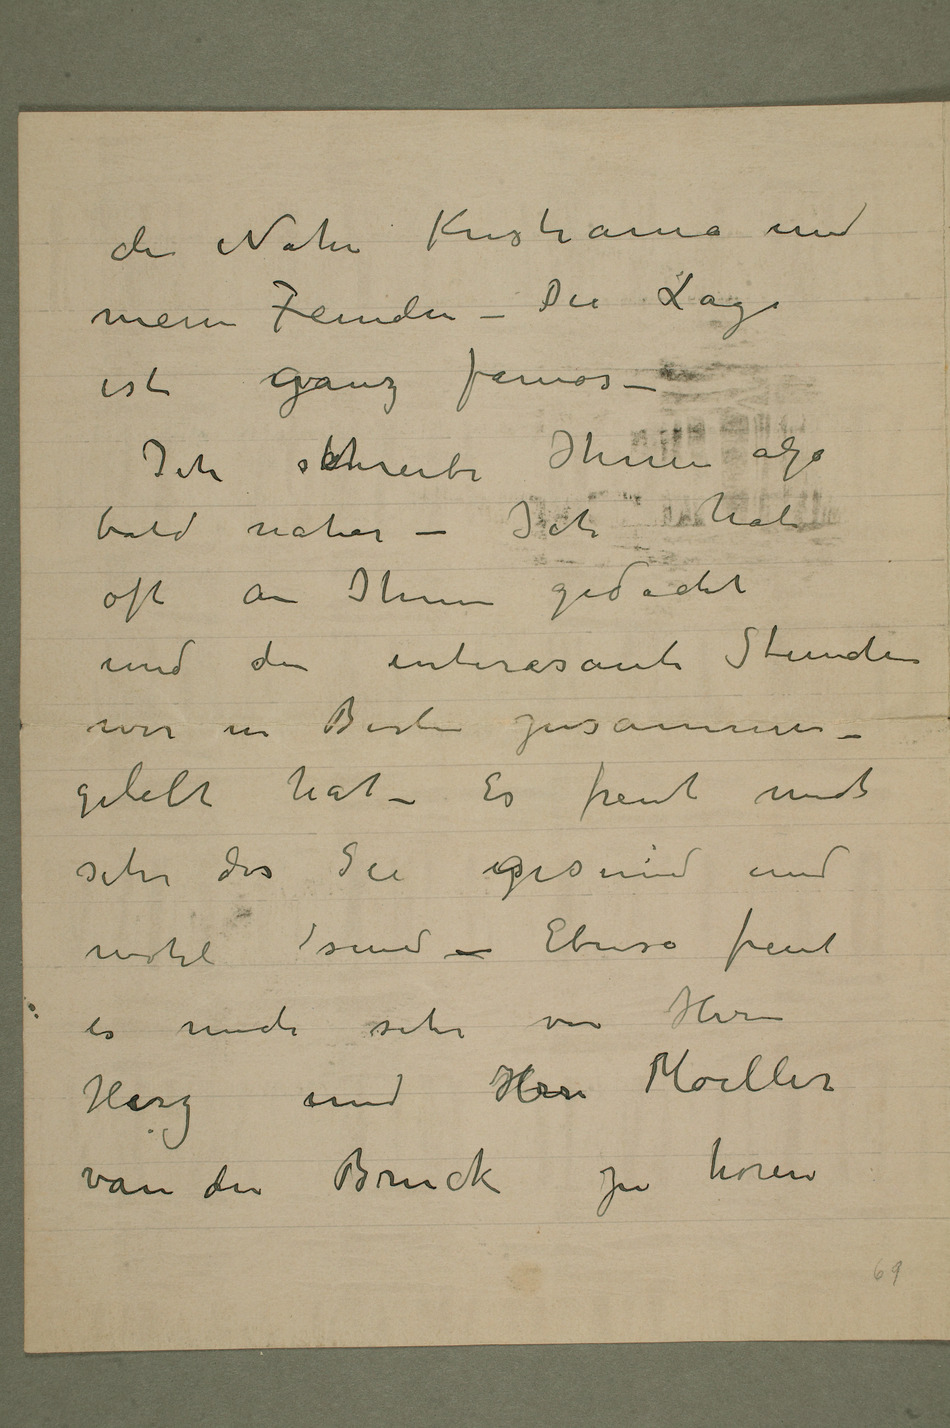 der Nähe Kristiania und
meine Feinden – Die Lage
ist ganz famos –
Ich schreibe Ihnen also
bald naher – Ich habe
oft an Ihnen gedacht
und den interesante Stunden
wir in Berlin zusammen –
gelebt hat – Es freut mich
sehr das Sie gesund und
wohl sind – Ebenso freut
es mich sehr von Herrn
Herz und Herrn Moeller
van den Bruck zu horen
69